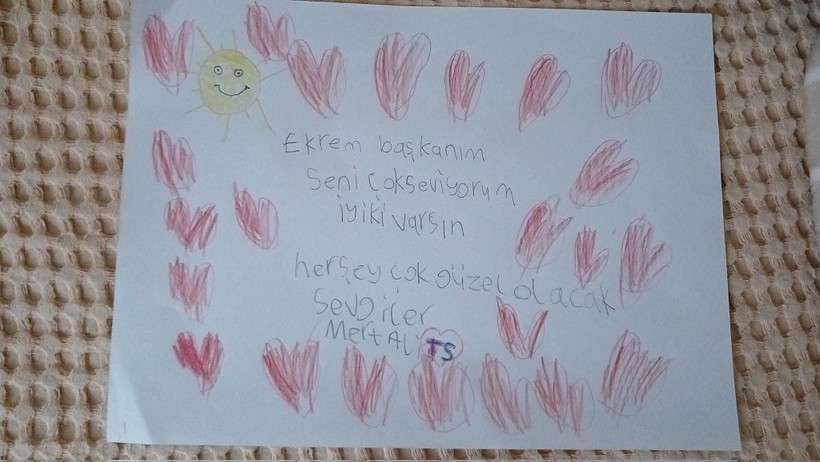 Ekrem başkanım
Seni çokseviyorum
iyiki varsın
herşey çok güzel olacak
Sevgiler
Mert Ali TS